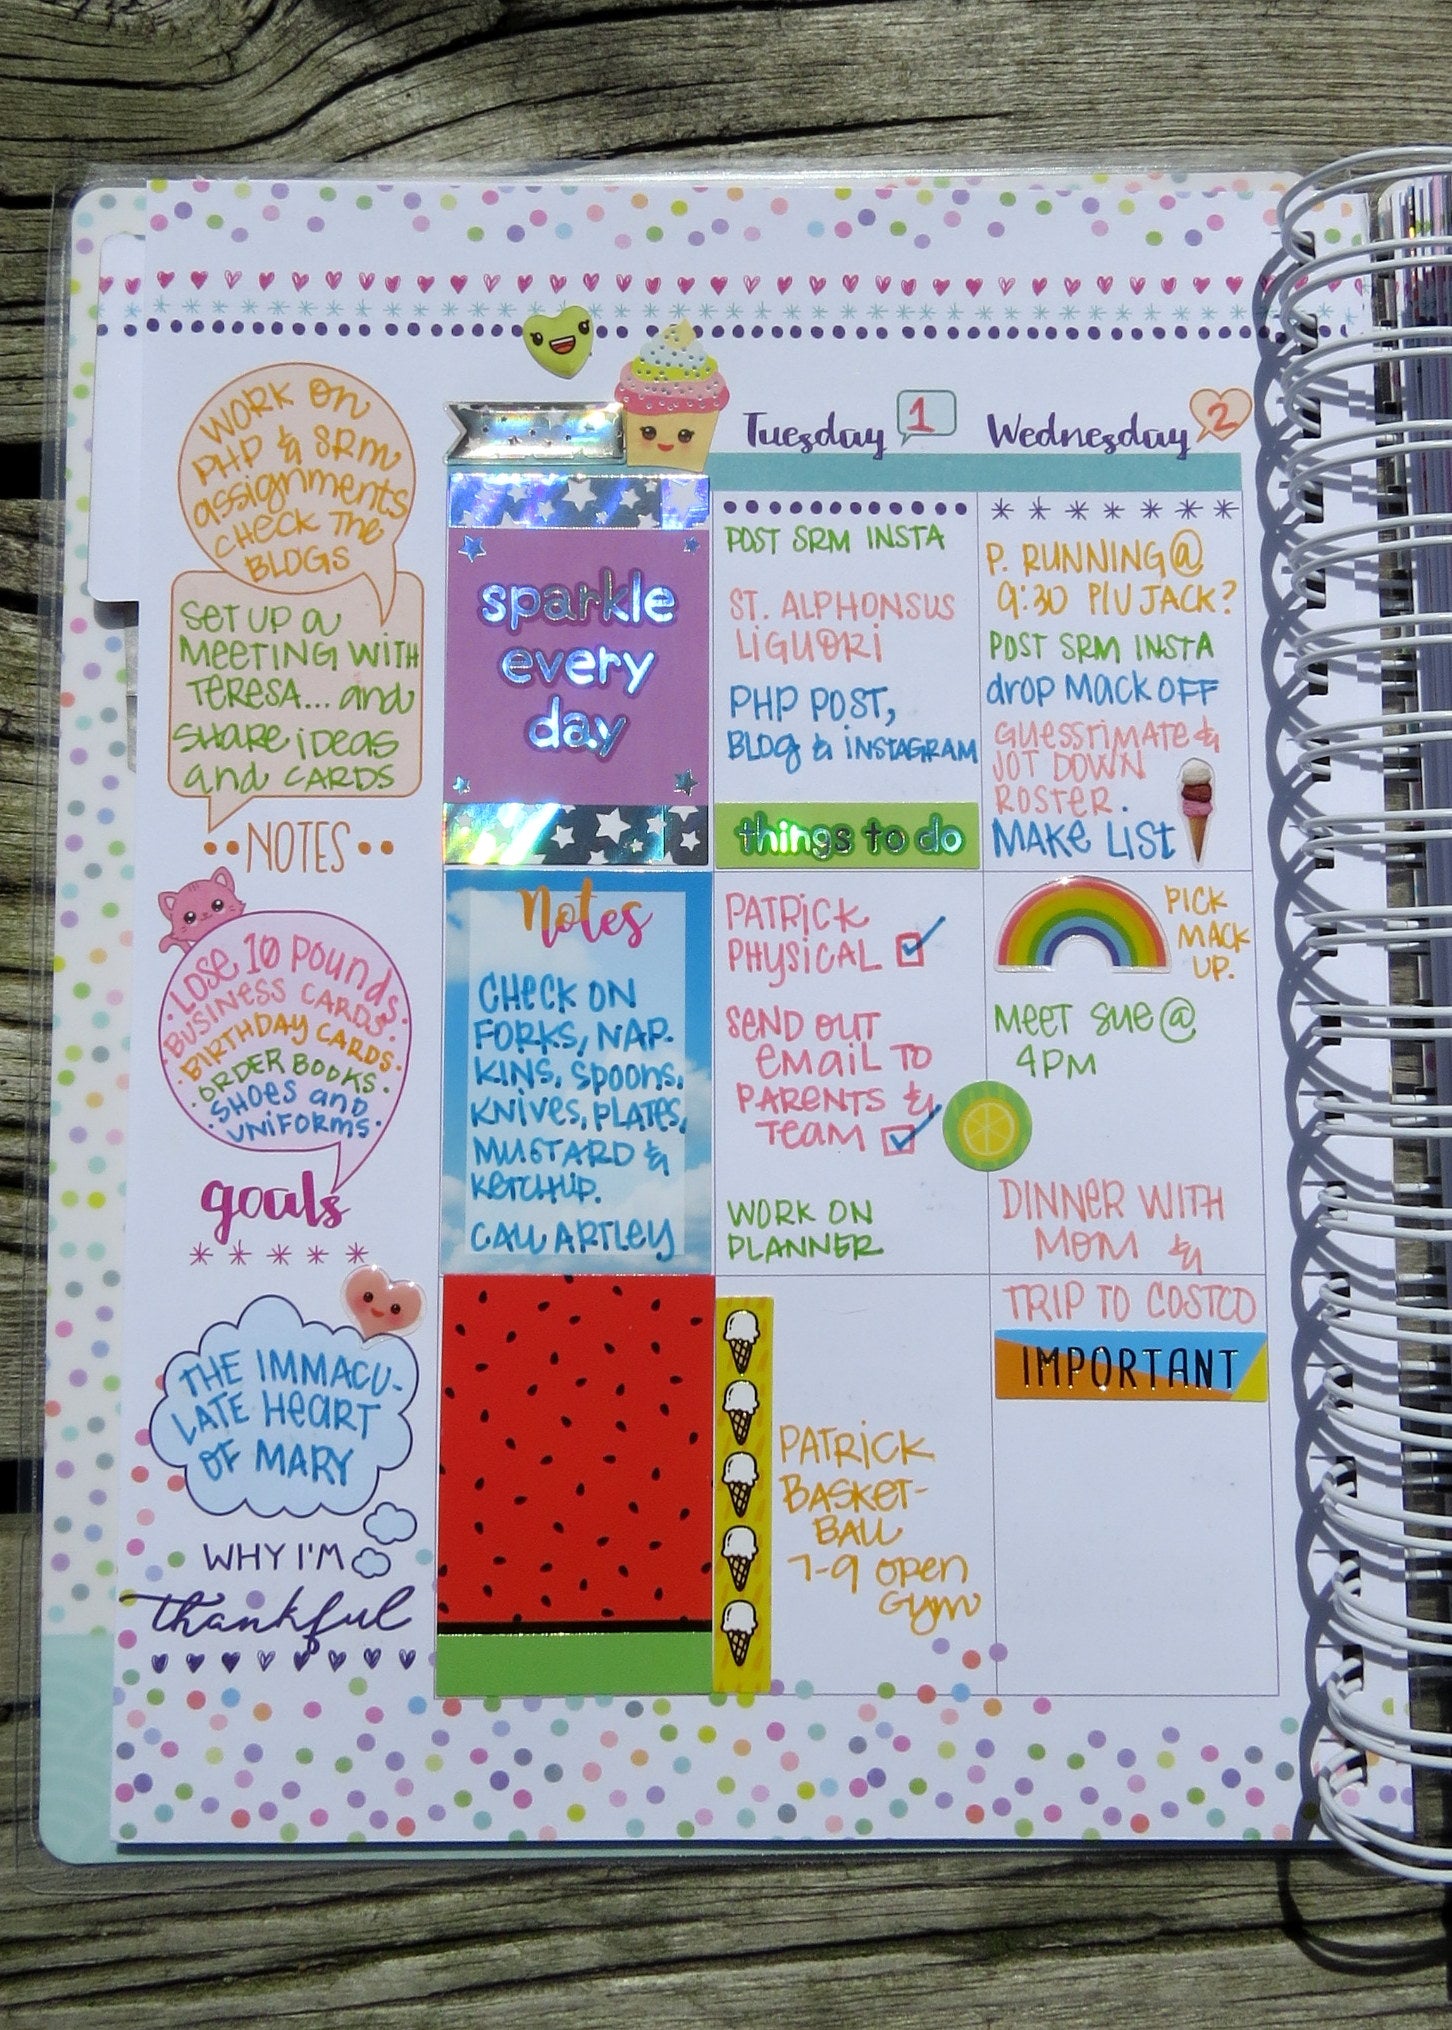 WORK ON
PHP & SRM
assignments
CHECK THE
BLOGS
SET UP a
MEETING WITH
TERESA... and
SHARE IDEAS
and CARDS
NOTES
LOSE 10 POUNDS.
BUSINESS CARDS.
BIRTHDAY CARDS.
ORDER BOOKS.
SHOES and
UNIFORMS.
goals
THE IMMACU-
LATE HEART
OF MARY
WHY I'M
thankful
sparkle
every
day
Notes
CHECK ON
FORKS, NAP-
KINS, SPOONS,
KNIVES, PLATES,
MUSTARD &
KETCHUP.
CALL ARTLEY
Tuesday 1
POST SRM INSTA
ST. ALPHONSUS
LIGUORI
PHP POST,
BLOG & INSTAGRAM
things to do
PATRICK
PHYSICAL
SEND OUT
EMAIL TO
PARENTS &
TEAM
WORK ON
PLANNER
PATRICK
BASKET-
BALL
7-9 OPEN
GYM
Wednesday 2
P. RUNNING @
9:30 P/U JACK?
POST SRM INSTA
drop MACK OFF
GUESSTIMATE &
JOT DOWN
ROSTER.
MAKE LIST
PICK
MACK
UP.
MEET SUE @
4PM
DINNER WITH
MOM &
TRIP TO COSTCO
IMPORTANT